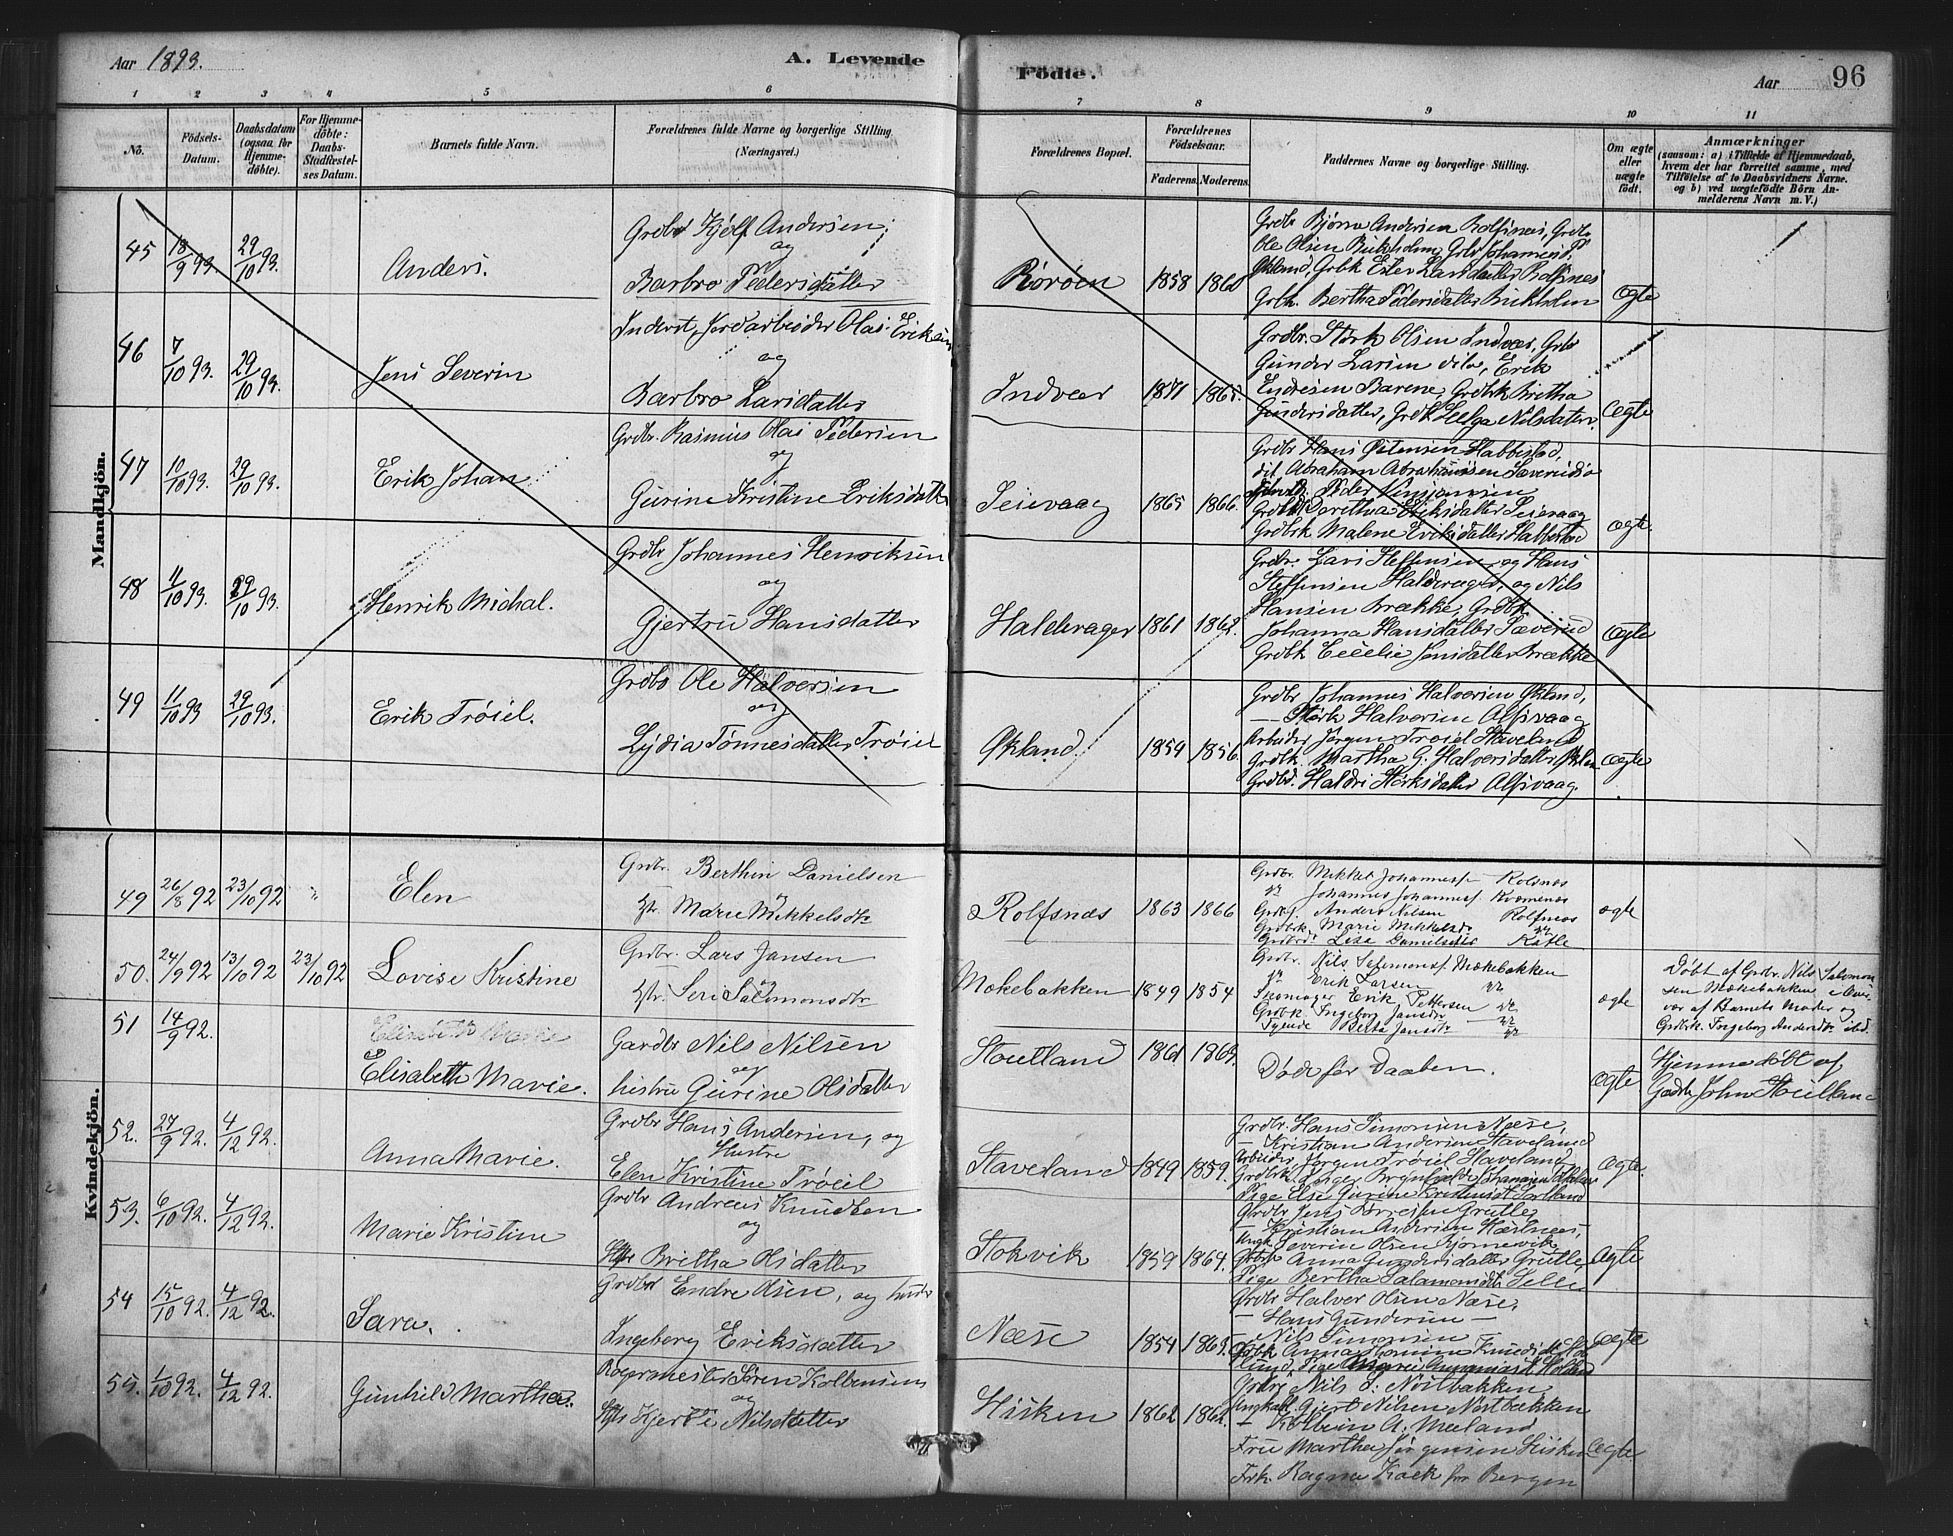 Aar 1893. A. Levende Födte. Aar 96
1 2 3 4 5 6 7 8 9 10 11
Nö. Födsels-Datum. Daabsdatum (ogsaa for Hjemme-döbte). For Hjemme-döbte: Daabs-Stadfæstel-ses Datum. Barnets fulde Navn. Forældrenes fulde Navne og borgerlige Stilling. (Næringsvei.) Forældrenes Bopæl. Forældrenes Födselsaar. Faderens. Moderens. Faddernes Navne og borgerlige Stilling. Om ægte eller uægte födt. Anmærkninger (saasom: a) i Tilfælde af Hjemmedaab, hvem der har forrettet samme, med Tilföielse af to Daabsvidners Navne. og b) ved uægtefödte Börn An-melderens Navn m. V.)
Mandkjön.
45 18/9 93. 29/10 93. Anders.
Grdbr Kjölf Andersen,
og
Barbro Pedersdatter
Rörøen 1858 1860
Grdbr Bjørn Andersen Rolfsnes, Grdbr
Ole Olsen Birkholm, Grbr Johannes P.
Økland, Grbk Ester Larsdatter Rolfsnes
Grbk. Bertha Pedersdatter Birkholm
Ægte
46 7/10 93. 29/10 93. Jens Severin
Inderst, Jordarbeider Olai Eriksen
og
Barbro Larsdatter
Indvær 1871 1865.
Grdbr. Størk Olsen Indvær, Grbr
Gunder Larsen dito, Erik
Endresen Barene, Grdbk Bretha
Gundersdatter, Grdbk Helga Nilsdatter.
Ægte
47 10/10 93. 29/10 93. Erik Johan
Grdbr. Rasmus Olai Pedersen
og
Gurine Kristine Eriksdatter
Seievaag 1865 1866.
Grdbr Hans Østensen Habbestad,
dit. Abraham Abrahamsen Sæverudsø
Peder
Grdbk Dorethea Eriksdatter Seievaag
Grdbrk Malene Eriksdatter Habbestad
Ægte.
48 11/10 93. 29/10 93. Henrik Michal.
Grdbr Johannes Henriksen
og
Gjertru Hansdatter
Haldorager 1861 1862.
Grdbr. Lars Steffensen og Hans
Steffensen Haldorager, og Nils
Hansen Brække, Grdbk.
Johanna Hansdatter Sæverud
Grdbk Cecelie Jensdatter Brække
Ægte
49 11/10 93 29/10 93. Erik Trøiel.
Grdbr Ole Halvorsen
og
Lydia Tønnesdatter Trøiel
Økland 1854 1856.
Grdbr Johannes Halvorsen Økland,
— Størk Halvorsen Alfsvaag
Arbeider Jørgen Trøiel Staveland
Grdbk. Martha G. Halvorsdatter
Grdbr. Haldri Størksdatter Alfsvaag.
Ægte
Kvindekjön.
49 26/8 92 23/10 92 " Elen
Grdbr. Berthin Danielsen
og
Hstr. Marie Mikkelsdtr
Rolfsnæs 1863 1866
Grdbr. Mikkel Johannesf. Rolsnæs
Johannes Johannesf. Kvomenæs
Anders Nilsen Rolfsnæs
Grdbrk. Marie Mikkelsdr
Lisa Danielsdtr Katle
ægte
50. 24/9 92 13/10 92 23/10 92 Lovise Kristine
Grdbr. Lars Jansen
og
Hstr. Seri Salomonsdtr
Møkebakken 1849 1854
Grdbr. Nils Salemonsf. Møkebakken
Erik Larsen
Skomager Erik Pettersen
Grdbk. Ingeborg Jansdtr
Tyende Berta Jansdtr
ægte
Döbt af Grdbr. Nils Salomon
sen Møkebakken i Over
vær af Barnets Moder og
Grdbrk. Ingeborg Andersdtr ibd.
51 14/9 92. Elisabeth Marie
Elisabeth Marie.
Gardbr Nils Nilsen
og
hustru Gurine Olsdatter
Stoutland 1861 1869.
Døde før Daaben.
Ægte
Hjemmedöbt af
Gadbr John Stoutland
52. 27/9 92. 4/12 92. Anna Marie.
Grdbr Hans Andersen, og
Hustru
Elen Kristine Trøeil
Staveland 1849 1859.
Grdbr. Hans Simonsen Næse,
— Kristian Andersen Staveland
Arbeider Jørgen Trøiel Staveland
Pige Else Gurine Kristensdt
Ægte.
53. 6/10 92. 4/12 92. Marie Kristine
Grdbr Andreas Knudsen
og
Hstr Bretha Olsdatter
Stokvik 1859 1864.
Grdbr Jens Grutle,
— Kristian Andersen
Ungk Severin Olsen Bjørnevik
Grdbk Anna Gundersdatter Grutle
Pige Bertha Salamonsdt
Ægte
54 15/10 92. 4/12 92. Sara.
Grdbr Endre Olsen, og hustr
Ingeborg Eriksdatter
Næse 1854 1869.
Grdbr Halvor Olsen Næse,
— Hans Gundersen —
— Nils Simonsen
Ægte
55. 1/10 92. 4/12 92. Gunhild Marthea.
Søren Kolbensens
og
Hstr Hjertri Nilsdatter
Hisken 1862 1862.
Grdbr Nils L. Nøstbakken
Ungkall Gjert Nilsen Nøstbakken
— Kolbein A. Meeland
Fru Martha Jørgensen Hisken
Frk. Ragna Koek fra Bergen
Ægte